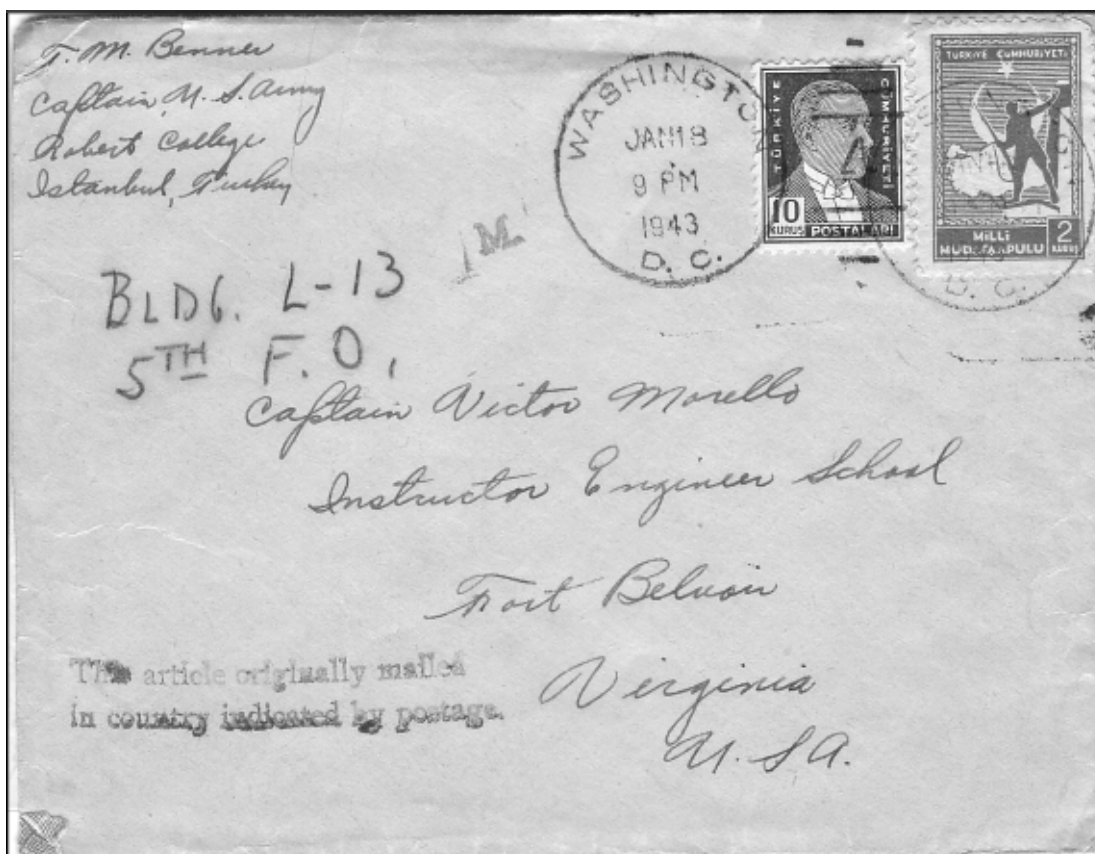 T. M. Benner
Captain, U. S. Army
Robert College
Istanbul, Turkey
WASHINGTON
JAN 18
9 PM
1943
D. C.
TÜRKİYE CUMHURİYETİ
10
KURUŞ POSTALARI
TÜRKİYE CUMHURİYETİ
MİLLİ
MÜDAFAA PULU
2
KURUŞ
D. C.
M.
BLDG. L-13
5TH F. O.
Captain Victor Morello
Instructor Engineer School
Fort Belvoir
Virginia
U. S A.
This article originally mailed
in country indicated by postage.